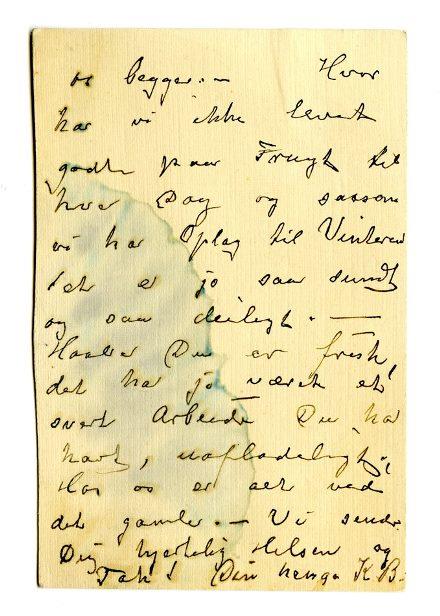 os begge. — Hvor
har vi ikke levet
godt paa Frugt til
hver Dag og sassom
vi har Oplag til Vinteren
det er jo saa sundt
og saa deiligt. —
Haaber Du er fresk,
det har jo været et
svert Arbeide Du har
havt, uafladeligt.,
Hos os er alt ved
det gamle. — Vi sender
Dig hjertelig Hilsen og
Tak! Din K B.